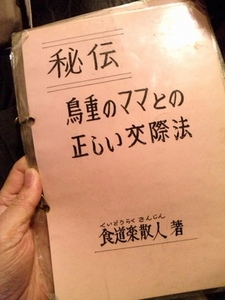 秘伝
鳥重のママとの
正しい交際法
くいどうらくさんじん
食道楽散人 著